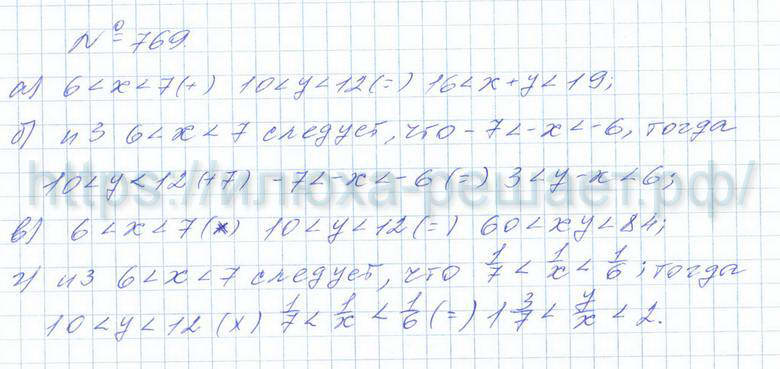 № 769.
а) 6 < x < 7 (+) 10 < y < 12 (=) 16 < x + y < 19;
б) из 6 < x < 7 следует, что -7 < -x < -6, тогда
10 < y < 12 (+7) -7 < -x < -6 (=) 3 < y - x < 6;
https://илюха-решает.рф/
в) 6 < x < 7 (×) 10 < y < 12 (=) 60 < xy < 84;
г) из 6 < x < 7 следует, что 1/7 < 1/x < 1/6; тогда
10 < y < 12 (×) 1/7 < 1/x < 1/6 (=) 1 3/7 < y/x < 2.